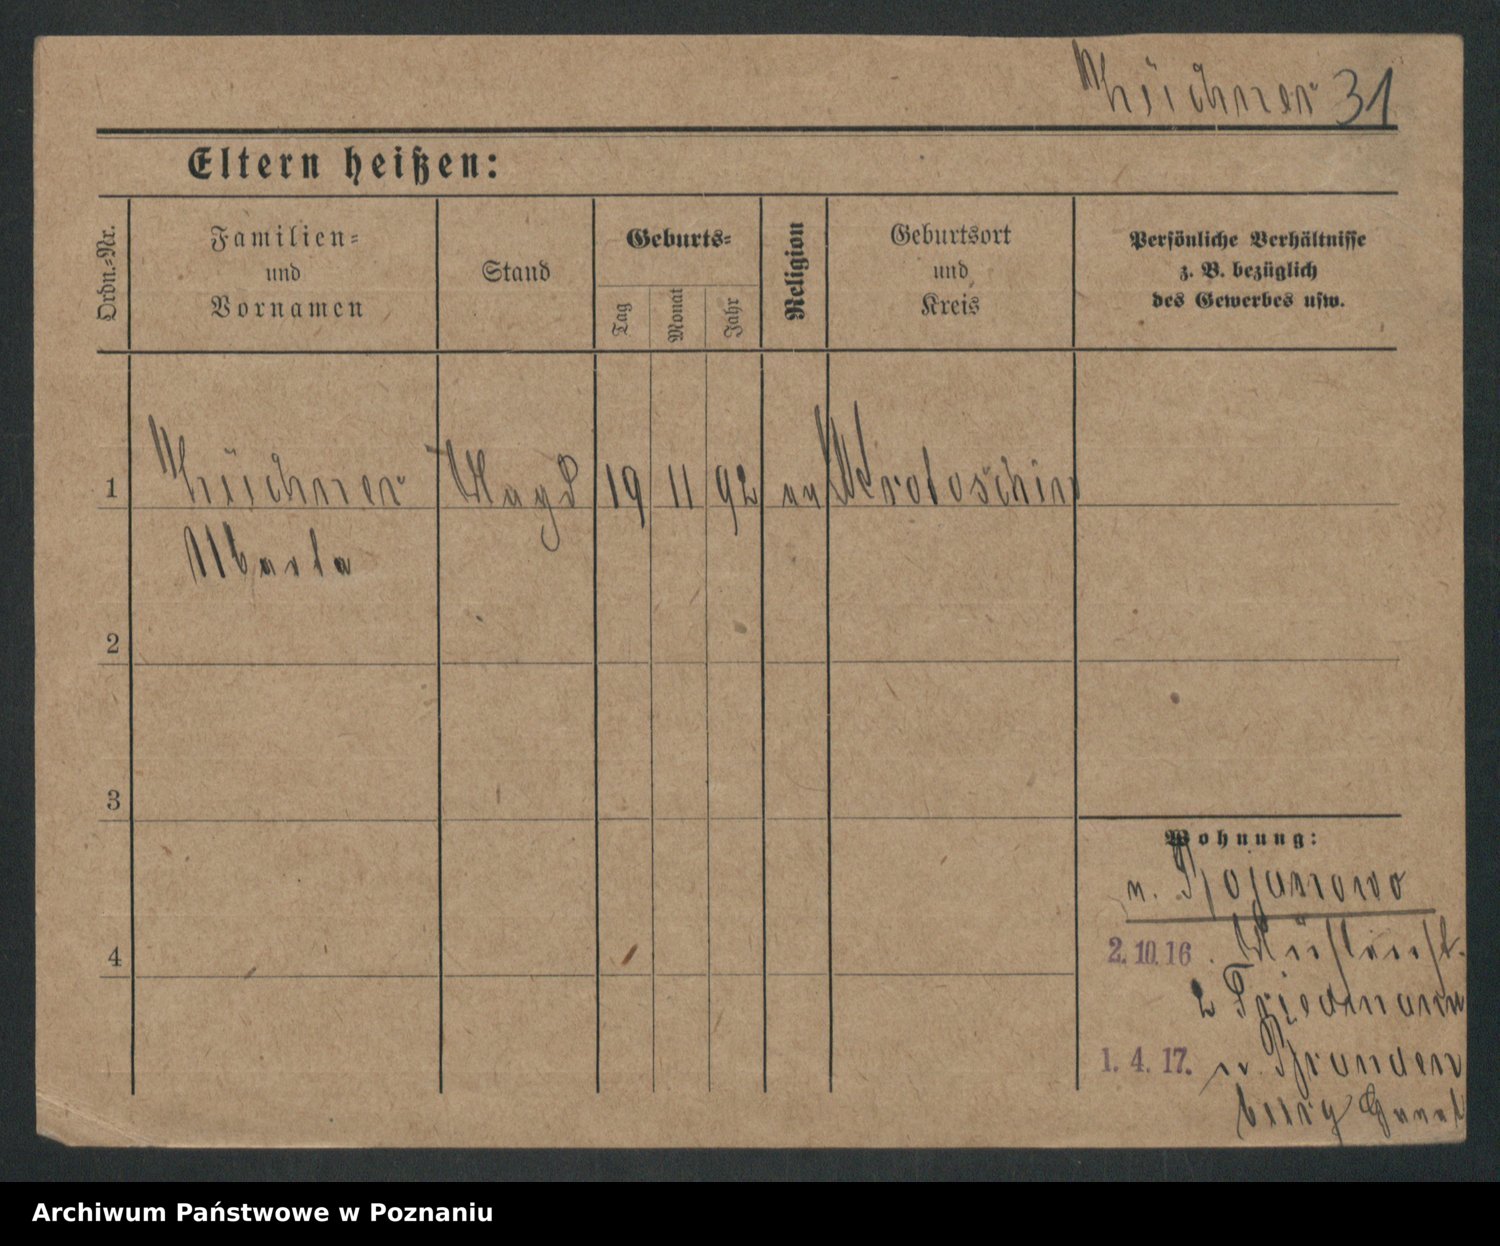 31
Eltern heißen:
Ordn.-Nr.
Familien-
und
Vornamen
Stand
Geburts-
Tag
Monat
Jahr
Religion
Geburtsort
und
Kreis
Persönliche Verhältnisse
z. B. bezüglich
des Gewerbes usw.
1
Magd
19
11
92
Krotoschin
Marta
2
3
4
Wohnung:
n. Bojanowo
2.10.16.
2 Friedmann
1. 4. 17. n. Branden
burg
Archiwum Państwowe w Poznaniu